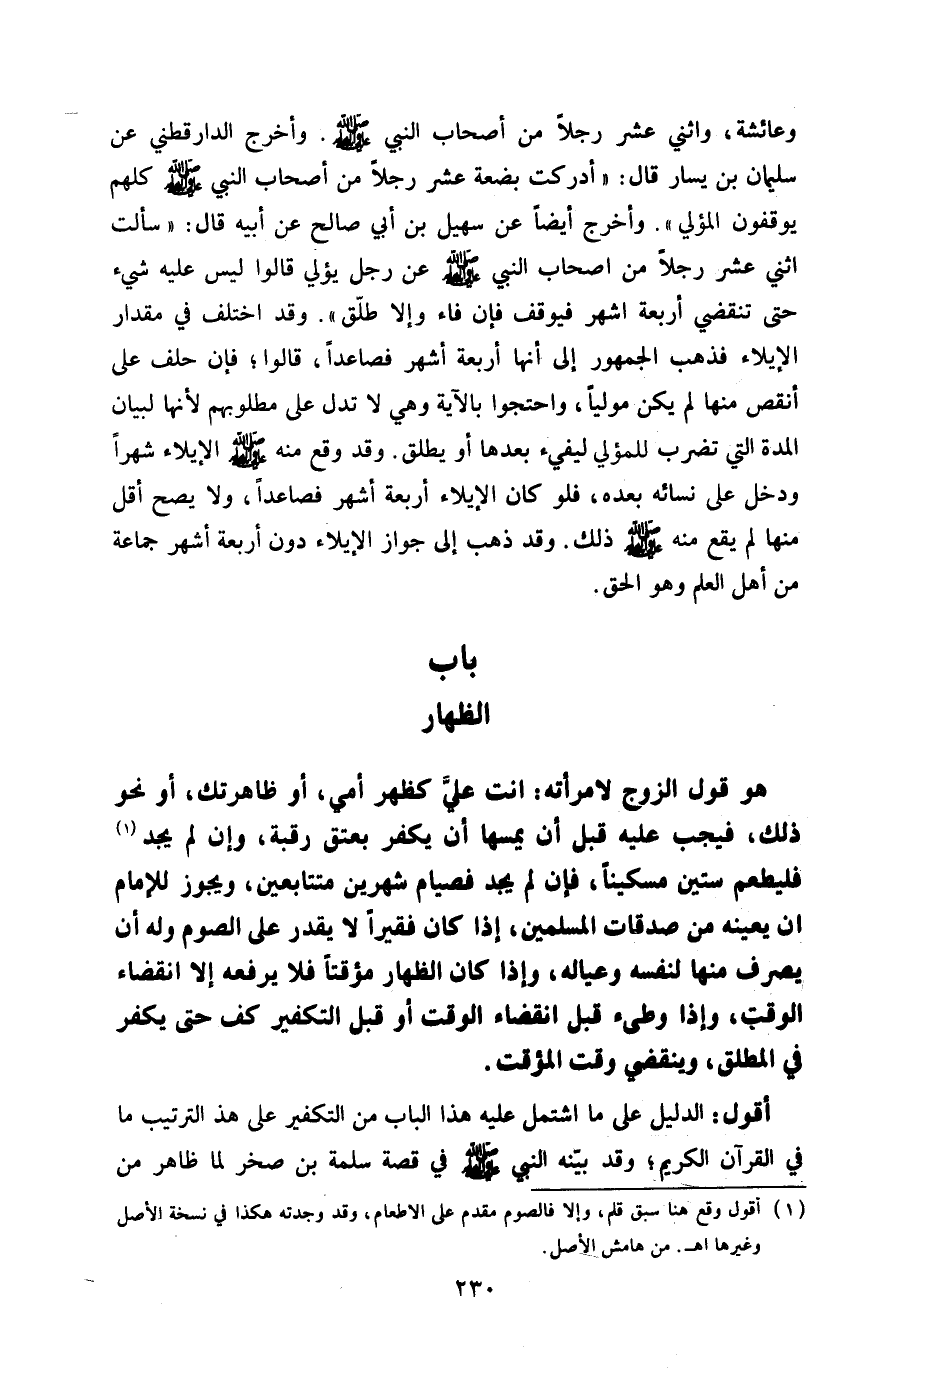 وعائشة، واثني عشر رجلاً من أصحاب النبي ﷺ. وأخرج الدارقطني عن
سليمان بن يسار قال: « أدركت بضعة عشر رجلاً من أصحاب النبي ﷺ كلهم
يوقفون المؤلي ». وأخرج أيضاً عن سهيل بن أبي صالح عن أبيه قال: « سألت
اثني عشر رجلاً من اصحاب النبي ﷺ عن رجل يؤلي قالوا ليس عليه شيء
حتى تنقضي أربعة اشهر فيوقف فإن فاء وإلا طلّق ». وقد اختلف في مقدار
الإيلاء فذهب الجمهور إلى أنها أربعة أشهر فصاعداً، قالوا؛ فإن حلف على
أنقص منها لم يكن مولياً، واحتجوا بالآية وهي لا تدل على مطلوبهم لأنها لبيان
المدة التي تضرب للمؤلي ليفيء بعدها أو يطلق. وقد وقع منه ﷺ الإيلاء شهراً
ودخل على نسائه بعده، فلو كان الإيلاء أربعة أشهر فصاعداً، ولا يصح أقل
منها لم يقع منه ﷺ ذلك. وقد ذهب إلى جواز الإيلاء دون أربعة أشهر جماعة
من أهل العلم وهو الحق.
باب
الظهار
هو قول الزوج لامرأته: انت عليَّ كظهر أمي، أو ظاهرتك، أو نحو
ذلك، فيجب عليه قبل أن يمسها أن يكفر بعتق رقبة، وإن لم يجد (١)
فليطعم ستين مسكيناً، فإن لم يجد فصيام شهرين متتابعين، ويجوز للإمام
ان يعينه من صدقات المسلمين، إذا كان فقيراً لا يقدر على الصوم وله أن
يصرف منها لنفسه وعياله، وإذا كان الظهار مؤقتاً فلا يرفعه إلا انقضاء
الوقت، وإذا وطىء قبل انقضاء الوقت أو قبل التكفير كف حتى يكفر
في المطلق، وينقضي وقت المؤقت.
أقول: الدليل على ما اشتمل عليه هذا الباب من التكفير على هذ الترتيب ما
في القرآن الكريم؛ وقد بيّنه النبي ﷺ في قصة سلمة بن صخر لما ظاهر من
(١) أقول وقع هنا سبق قلم، وإلا فالصوم مقدم على الاطعام، وقد وجدته هكذا في نسخة الأصل
وغيرها اهـ. من هامش الأصل.
٢٣٠